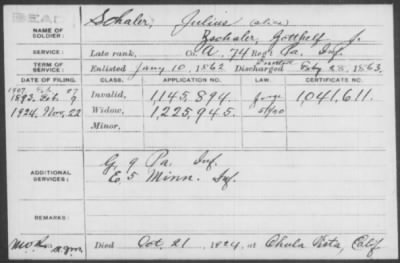 DEAD
NAME OF SOLDIER: Schaler, Julius (alias)
Zschaler, Gotthelf J.
SERVICE: Late rank, Co. A, 74 Reg't Pa. Inf.
TERM OF SERVICE: Enlisted Jany 10, 1862 Discharged Feby 28, 1863.
DATE OF FILING. CLASS. APPLICATION NO. LAW. CERTIFICATE NO.
1907 Feb. 27
1892. Feb. 9 Invalid, 1,145,894 1,041,611.
1924. Nov, 22 Widow, 1,225,945.
Minor,
ADDITIONAL SERVICES: G. 9 Pa. Inf.
E, 5 Minn. Inf.
REMARKS:
Died Oct. 21, 1924, at Chula Vista, Calif